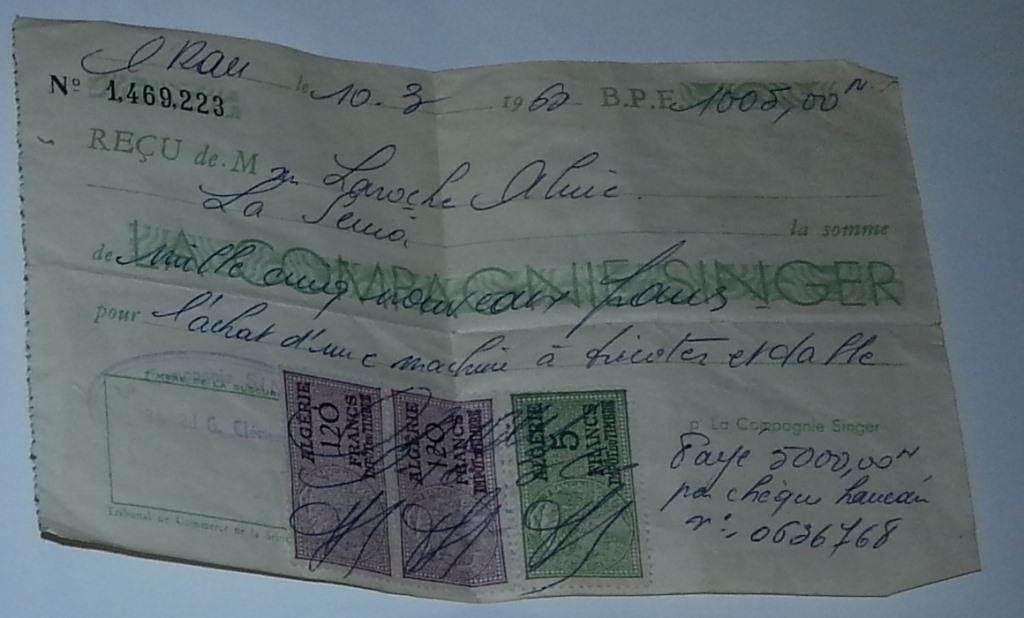 Oran le 10. 3 1960 B.P.F. 1005,00
Nº 1,469,223
REÇU de M Laroche
La Senia la somme
LA COMPAGNIE SINGER
de mille cinq nouveaux francs
pour l'achat d'une machine à tricoter et table
TIMBRE DE LA
G. Clém
Tribunal de Commerce de la Seine
ALGÉRIE
120
FRANCS
IMPÔT DU TIMBRE
ALGÉRIE
120
FRANCS
IMPÔT DU TIMBRE
ALGÉRIE
5
FRANCS
IMPÔT DU TIMBRE
p. La Compagnie Singer
Payé 5000,00
par chèque bancaire
n° 0636768